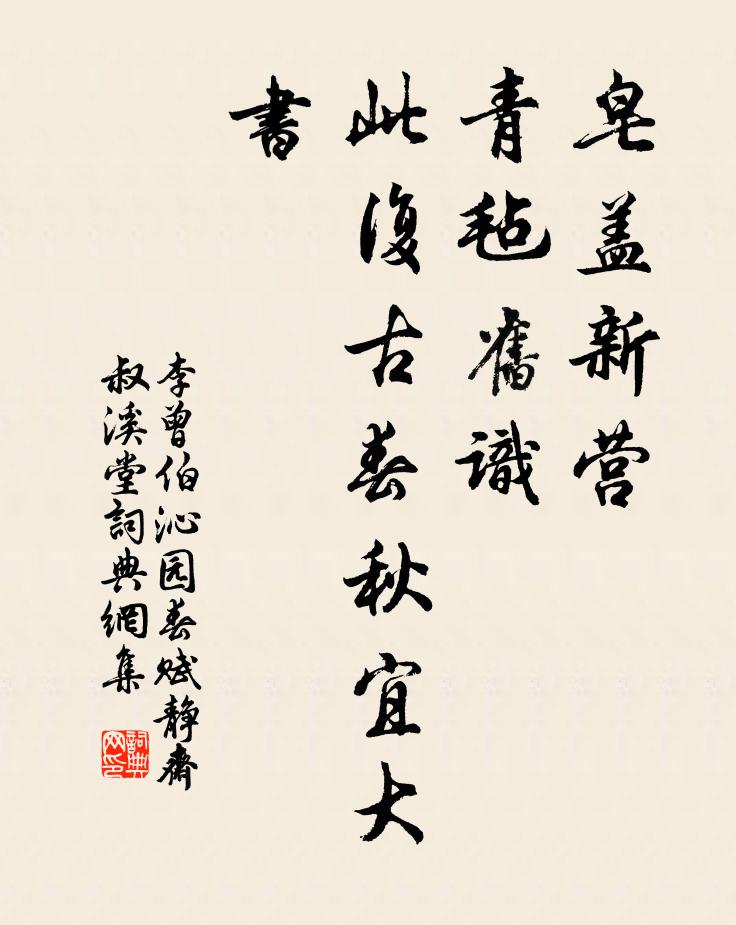 皂盖新营
青毡舊識
此復古春秋宜大
書
李曾伯沁园春赋静齋
叔溪堂詞典網集
詞典网印